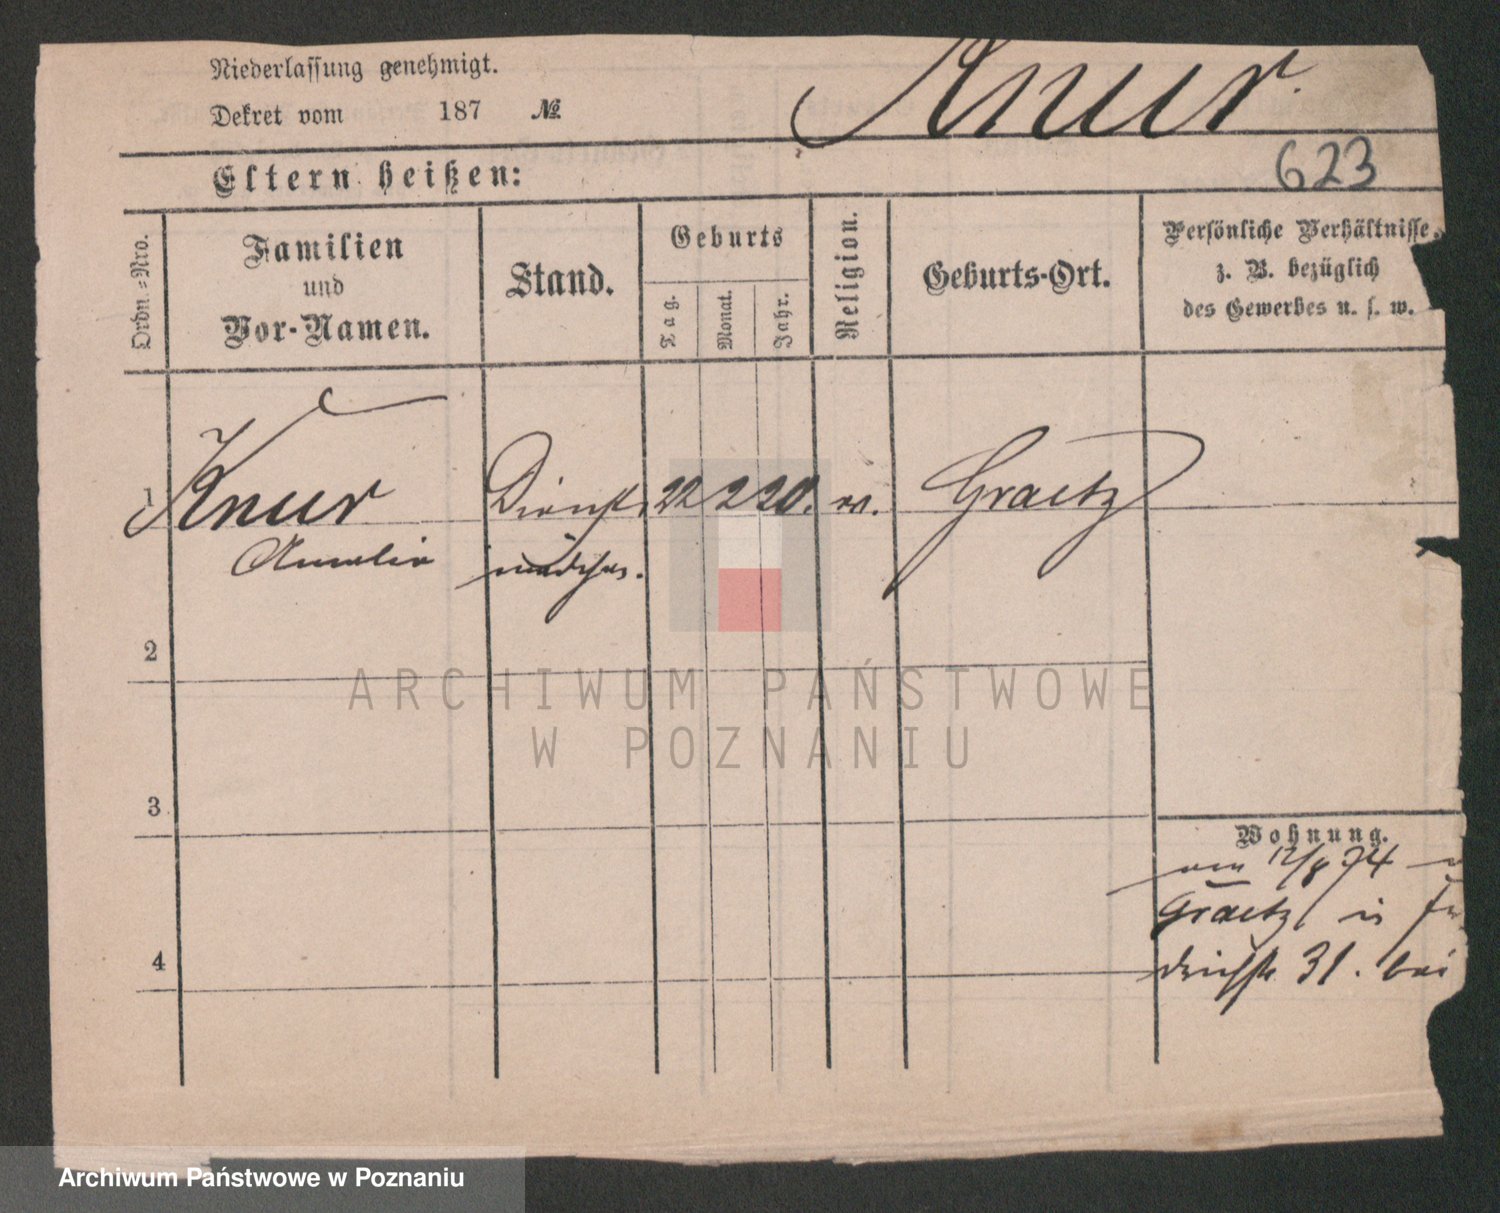 Niederlassung genehmigt.
Knur.
Dekret vom 187 №
Eltern heißen:
623
Ordn.-Nro.
Familien
und
Vor-Namen.
Stand.
Geburts
Tag.
Monat.
Jahr.
Religion.
Geburts-Ort.
Persönliche Verhältnisse,
z. B. bezüglich
des Gewerbes u. s. w.
1 Knur Dienst 22 2 20. Graetz
Amalia mädchen.
2
ARCHIWUM PAŃSTWOWE
W POZNANIU
3
Wohnung.
12/8 74
Graetz in
31. bei
4
Archiwum Państwowe w Poznaniu